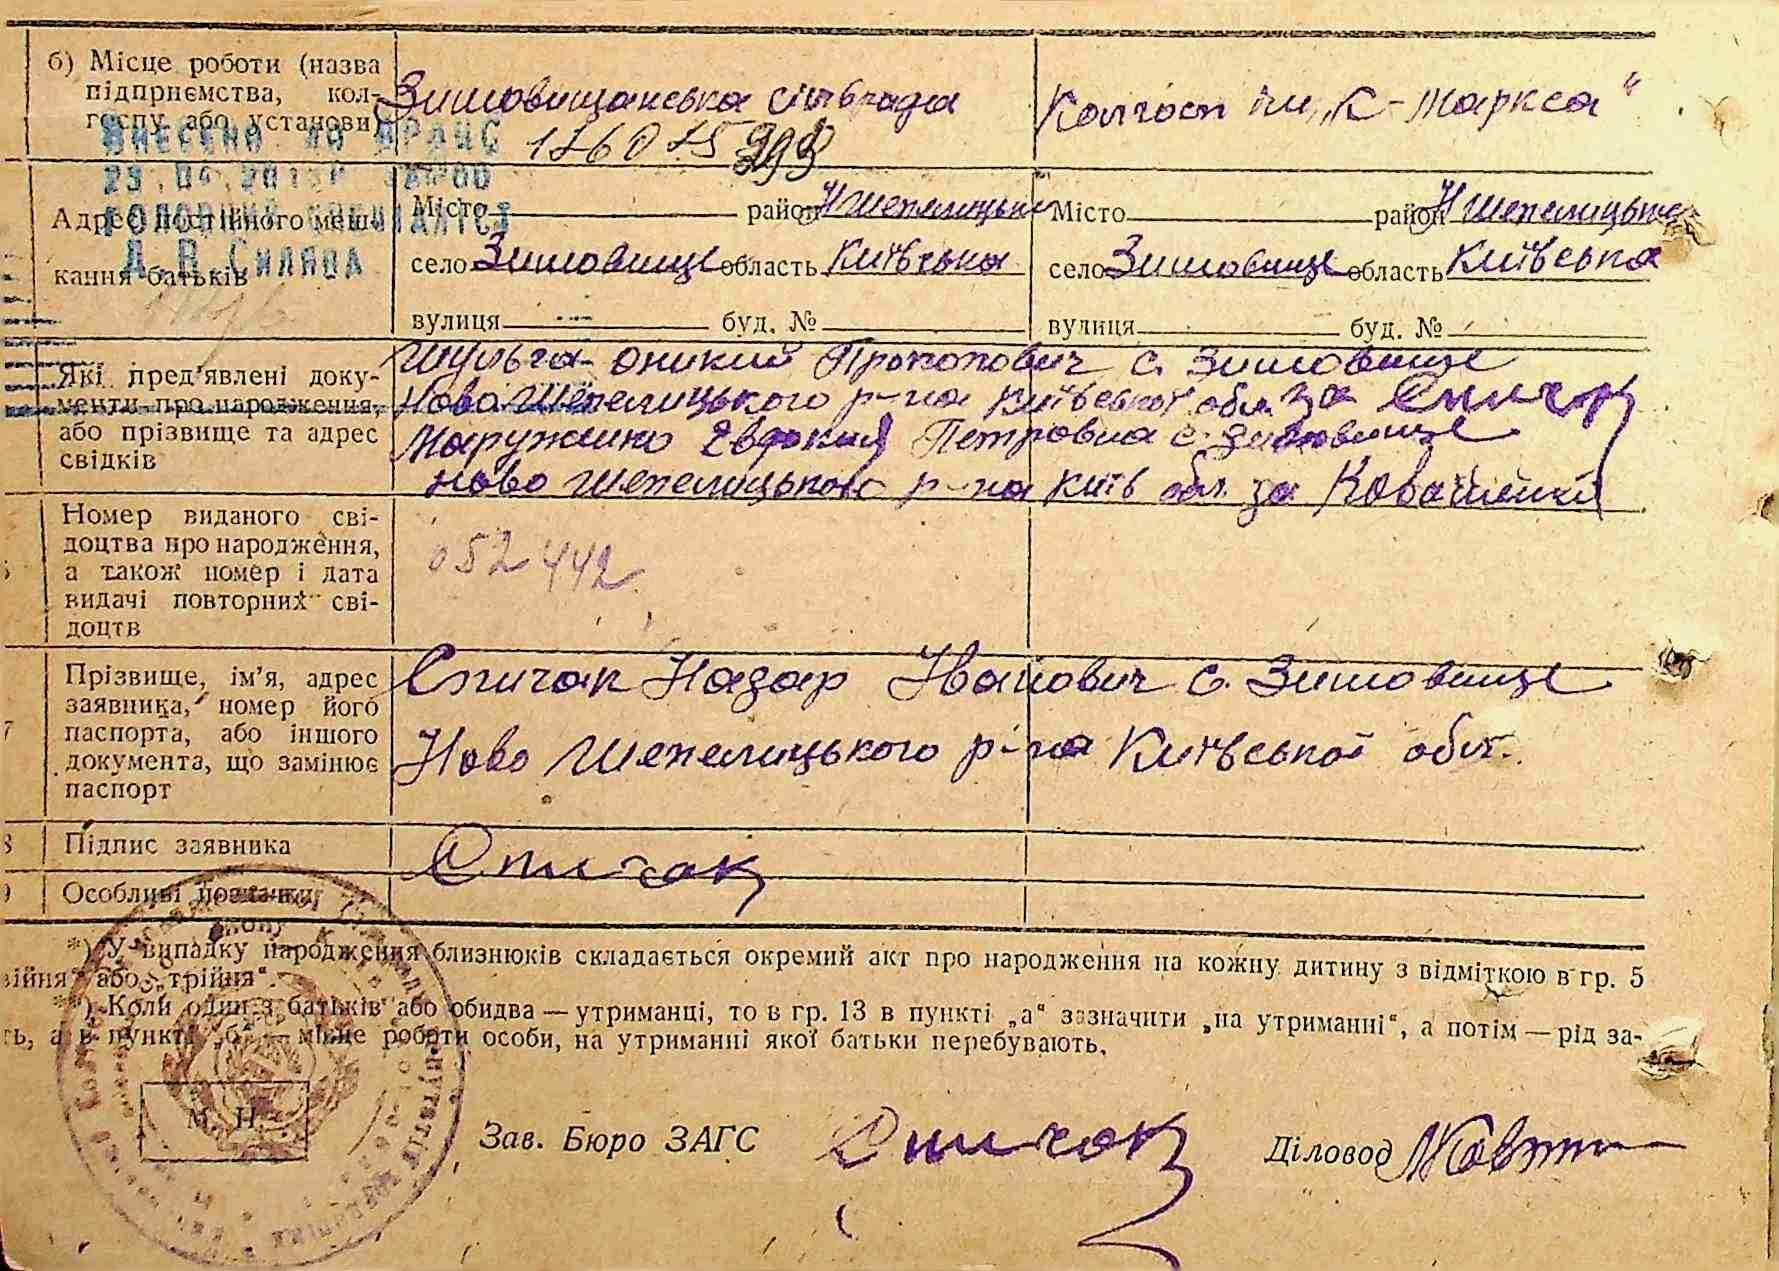 б) Місце роботи (назва
підприємства, кол-
госпу або установи)
Зимовищанська сільрада
Колгосп ім. „К-Маркса"
ВНЕСЕНО ДО ДРАЦС
Д.В. Силява
Адрес постійного меш-
кання батьків
Місто район Н Шепелицьки
село Зимовище область Київська
вулиця буд. №
Місто район Н Шепелицьки
село Зимовище область Київська
вулиця буд. №
Які пред'явлені доку-
менти про народження,
або прізвище та адрес
свідків
Шульга Оникий Прокопович с. Зимовище
Ново Шепелицького р-на Київської обл. за Спичак
Маружино Евдокия Петровна с. Зимовище
Ново Шепелицького р-на Київ обл. за
Номер виданого сві-
доцтва про народження,
а також номер і дата
видачі повторних сві-
доцтв
052442
Прізвище, ім'я, адрес
заявника, номер його
паспорта, або іншого
документа, що замінює
паспорт
Спичак Назар Іванович с. Зимовище
Ново Шепелицького р-на Київської обл.
Підпис заявника
Спичак
Особливі позначки
*) У випадку народження близнюків складається окремий акт про народження на кожну дитину з відміткою в гр. 5
або „трійня".
**) Коли один з батьків або обидва — утриманці, то в гр. 13 в пункті „а" зазначити „на утриманні", а потім — рід за-
а в пункті „б" — місце роботи особи, на утриманні якої батьки перебувають.
М. П.
Зав. Бюро ЗАГС Спичак Діловод